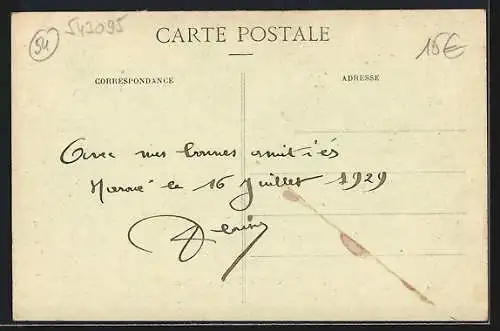 54
543095
15€
CARTE POSTALE
CORRESPONDANCE
ADRESSE
Avec mes bonnes amitiés
le 16 Juillet 1929